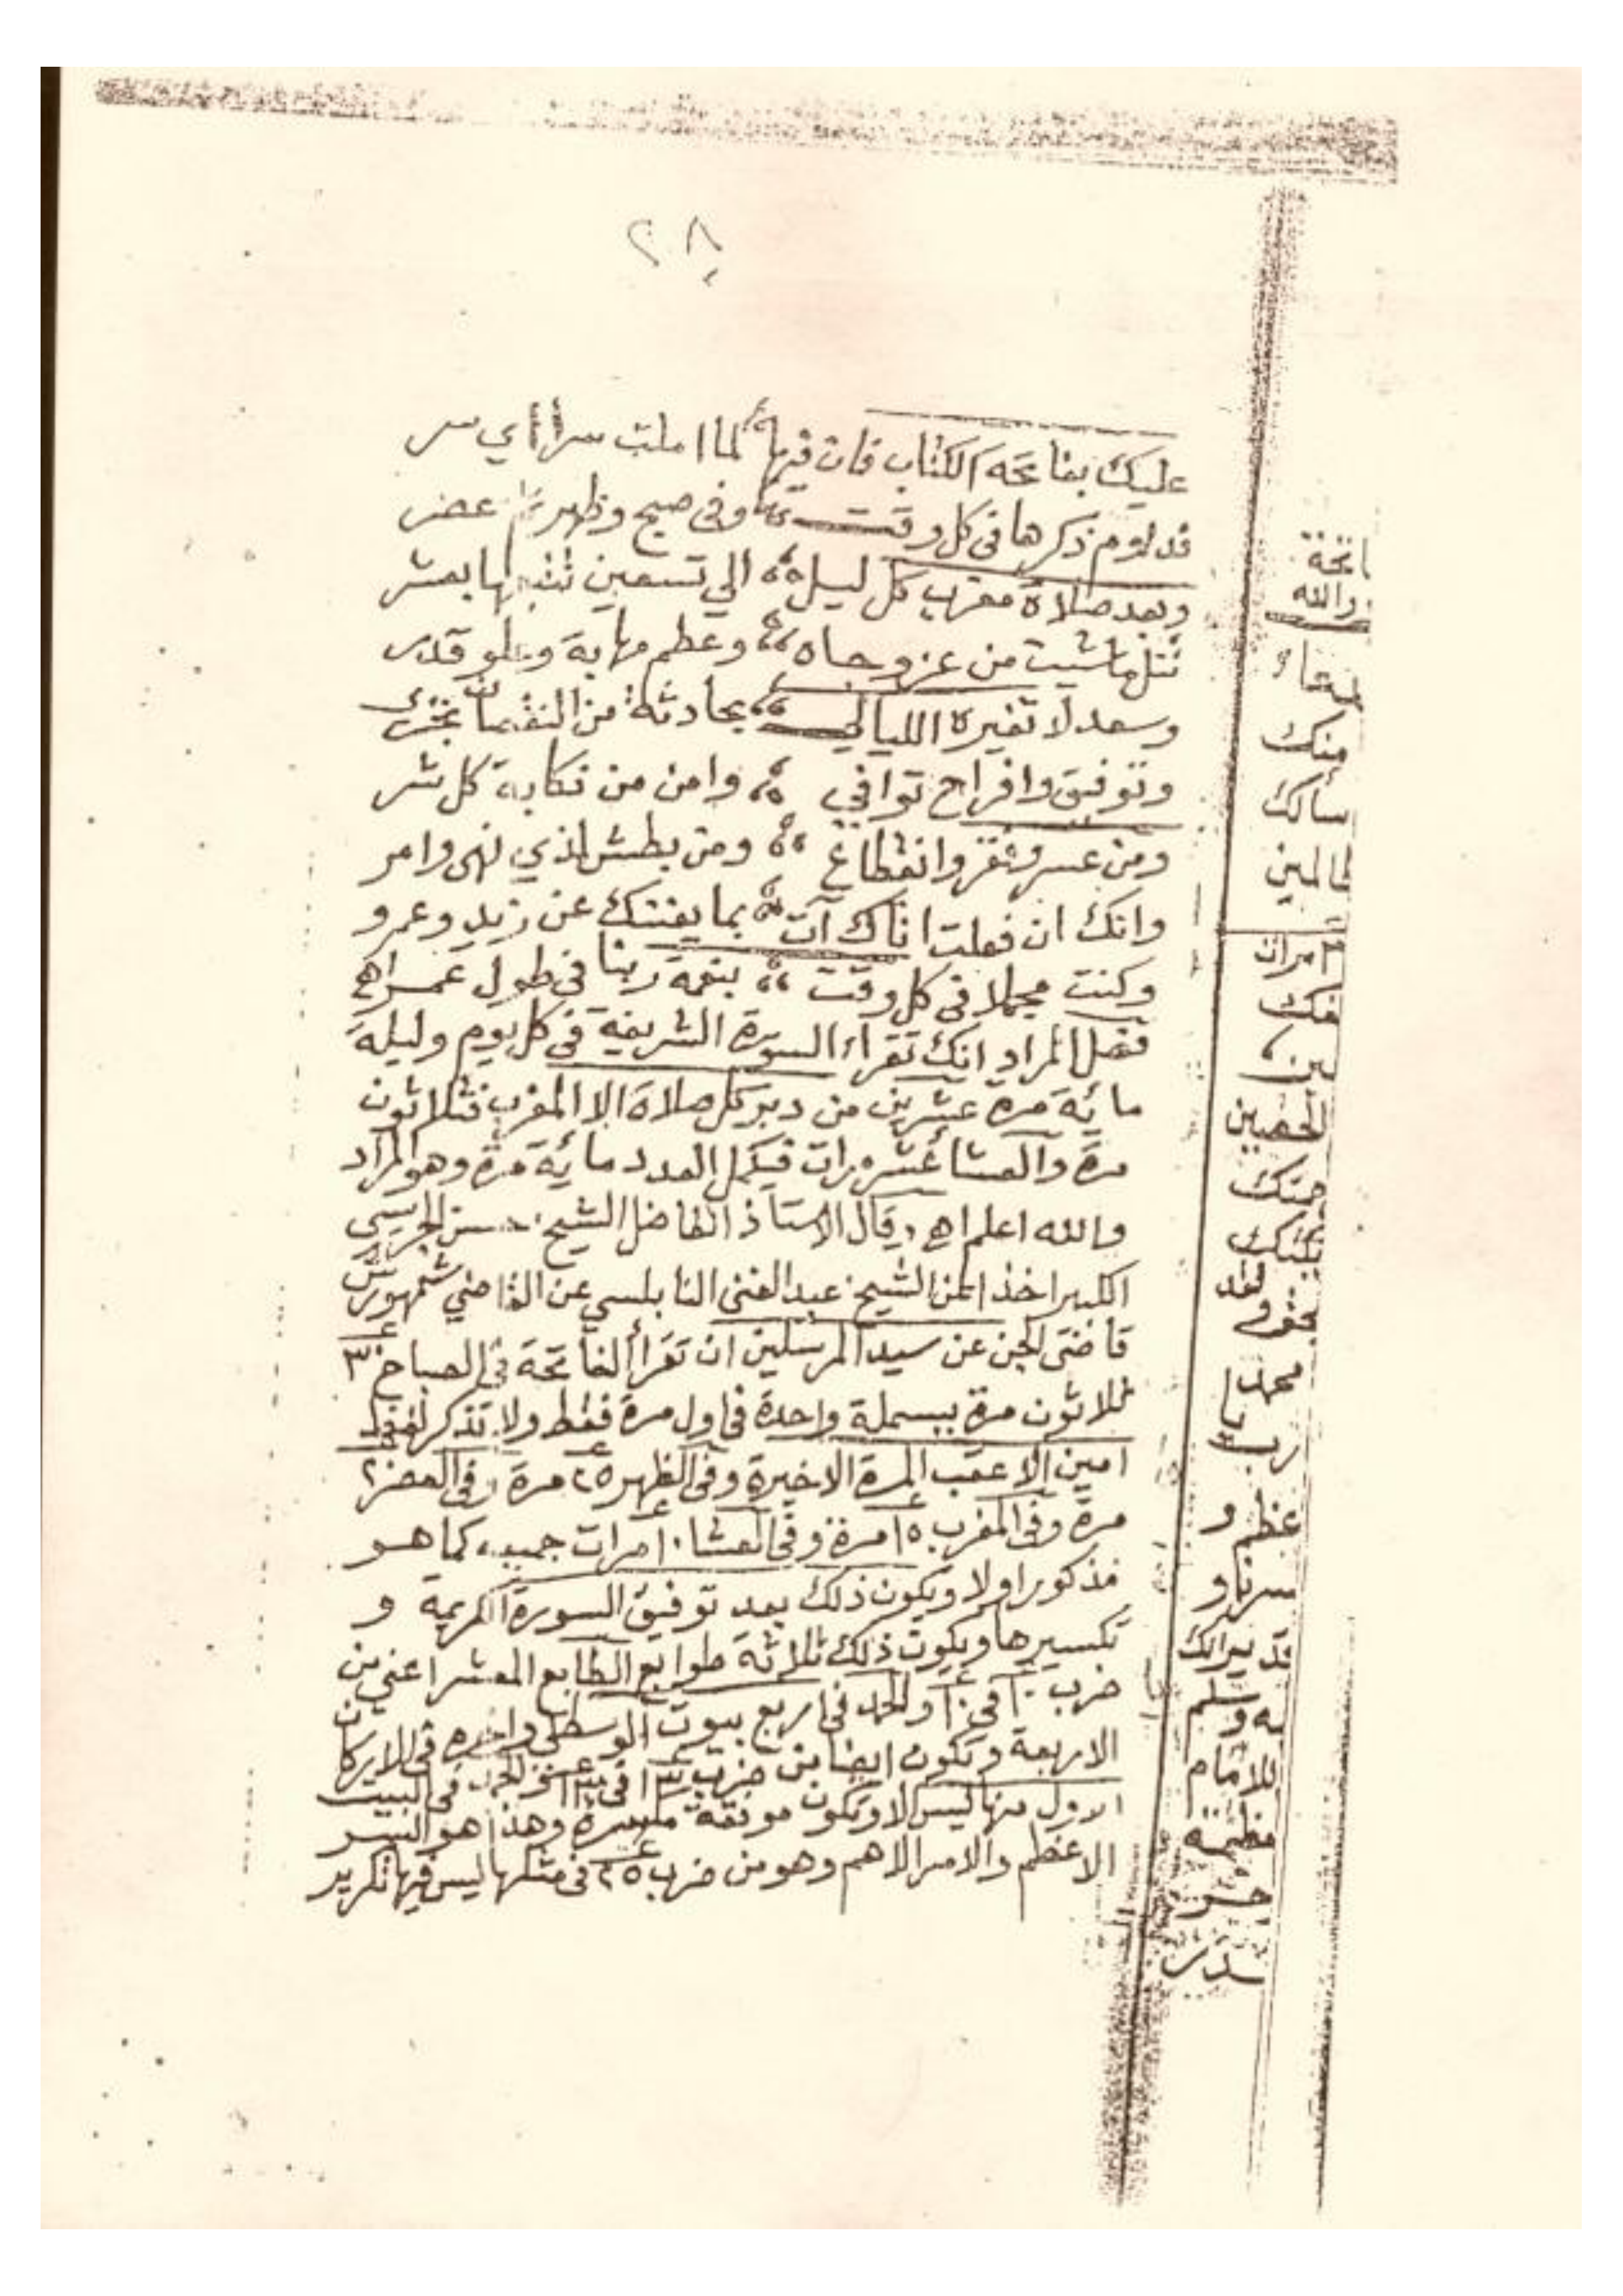 ٢٨
عليك بفاتحة الكتاب فان فيها لما املت سرا اي سر
فدلوم ذكرها في كل وقت وفي صبح وظهر ثم عصر
وبعد صلاة مغرب كل ليل الي تسعين تتبعها بعشر
تنل ما شيت من عز وجاه وعظم مهابة وعلو قدر
وسعد لا تغيره الليالي بحادثة من النقصان تجري
وتوفيق وافراح توافي وامن من نكاية كل شر
ومن عسر وفقر وانقطاع ومن بطش لذي نهى وامر
وانك ان فعلت اتاك آت بما يغنيك عن زيد وعمرو
وكنت مجملا في كل وقت بنعمة ربنا في طول عمر اهـ
فنصل المراد انك تقراء السورة الشريفة في كل يوم وليلة
مائة مرة عشرين من دبر كل صلاة الا المغرب فثلاثون
مرة والعشا عشر مرات فيكمل العدد مائة مرة وهو المراد
والله اعلم اهـ وقال الاستاذ الفاضل الشيخ حسن
الكبير اخذا من الشيخ عبد الغنى النابلسي عن القاضي شمهورش
قاضى الجن عن سيد المرسلين ان تقرأ الفاتحة في الصباح ٣٠
ثلاثون مرة ببسملة واحدة في اول مرة فقط ولا تذكر لفظ
امين الا عقب المرة الاخيرة وفي الظهر ٢٥ مرة وفي العصر ٢٠
مرة وفي المغرب ١٥ مرة وفي العشا ١٠ مرات كما هو
مذكور اولا ويكون ذلك بعد توفيق السورة الكريمة و
تكسيرها ويكون ذلك ثلاثة طوابع الطابع المعشر اعني من
ضرب ١٠ في ١٠ والحمد في اربع بيوت الوسطى واخره في الاركان
الاربعة وتكون ايضا من ضرب في الحمد في البيت
الاول منها ليس الا وتكون موفقة مكسرة وهذا هو السر
الاعظم والامر الاهم وهو من ضرب ٢٥ في مثلها ليس فيها تكرير
اتحة
والله
منك
سالك
عالمين
مرات
بن
بحق
محمد
رب
عظم و
سرنا و
قد يرالك
به وسلم
للامام